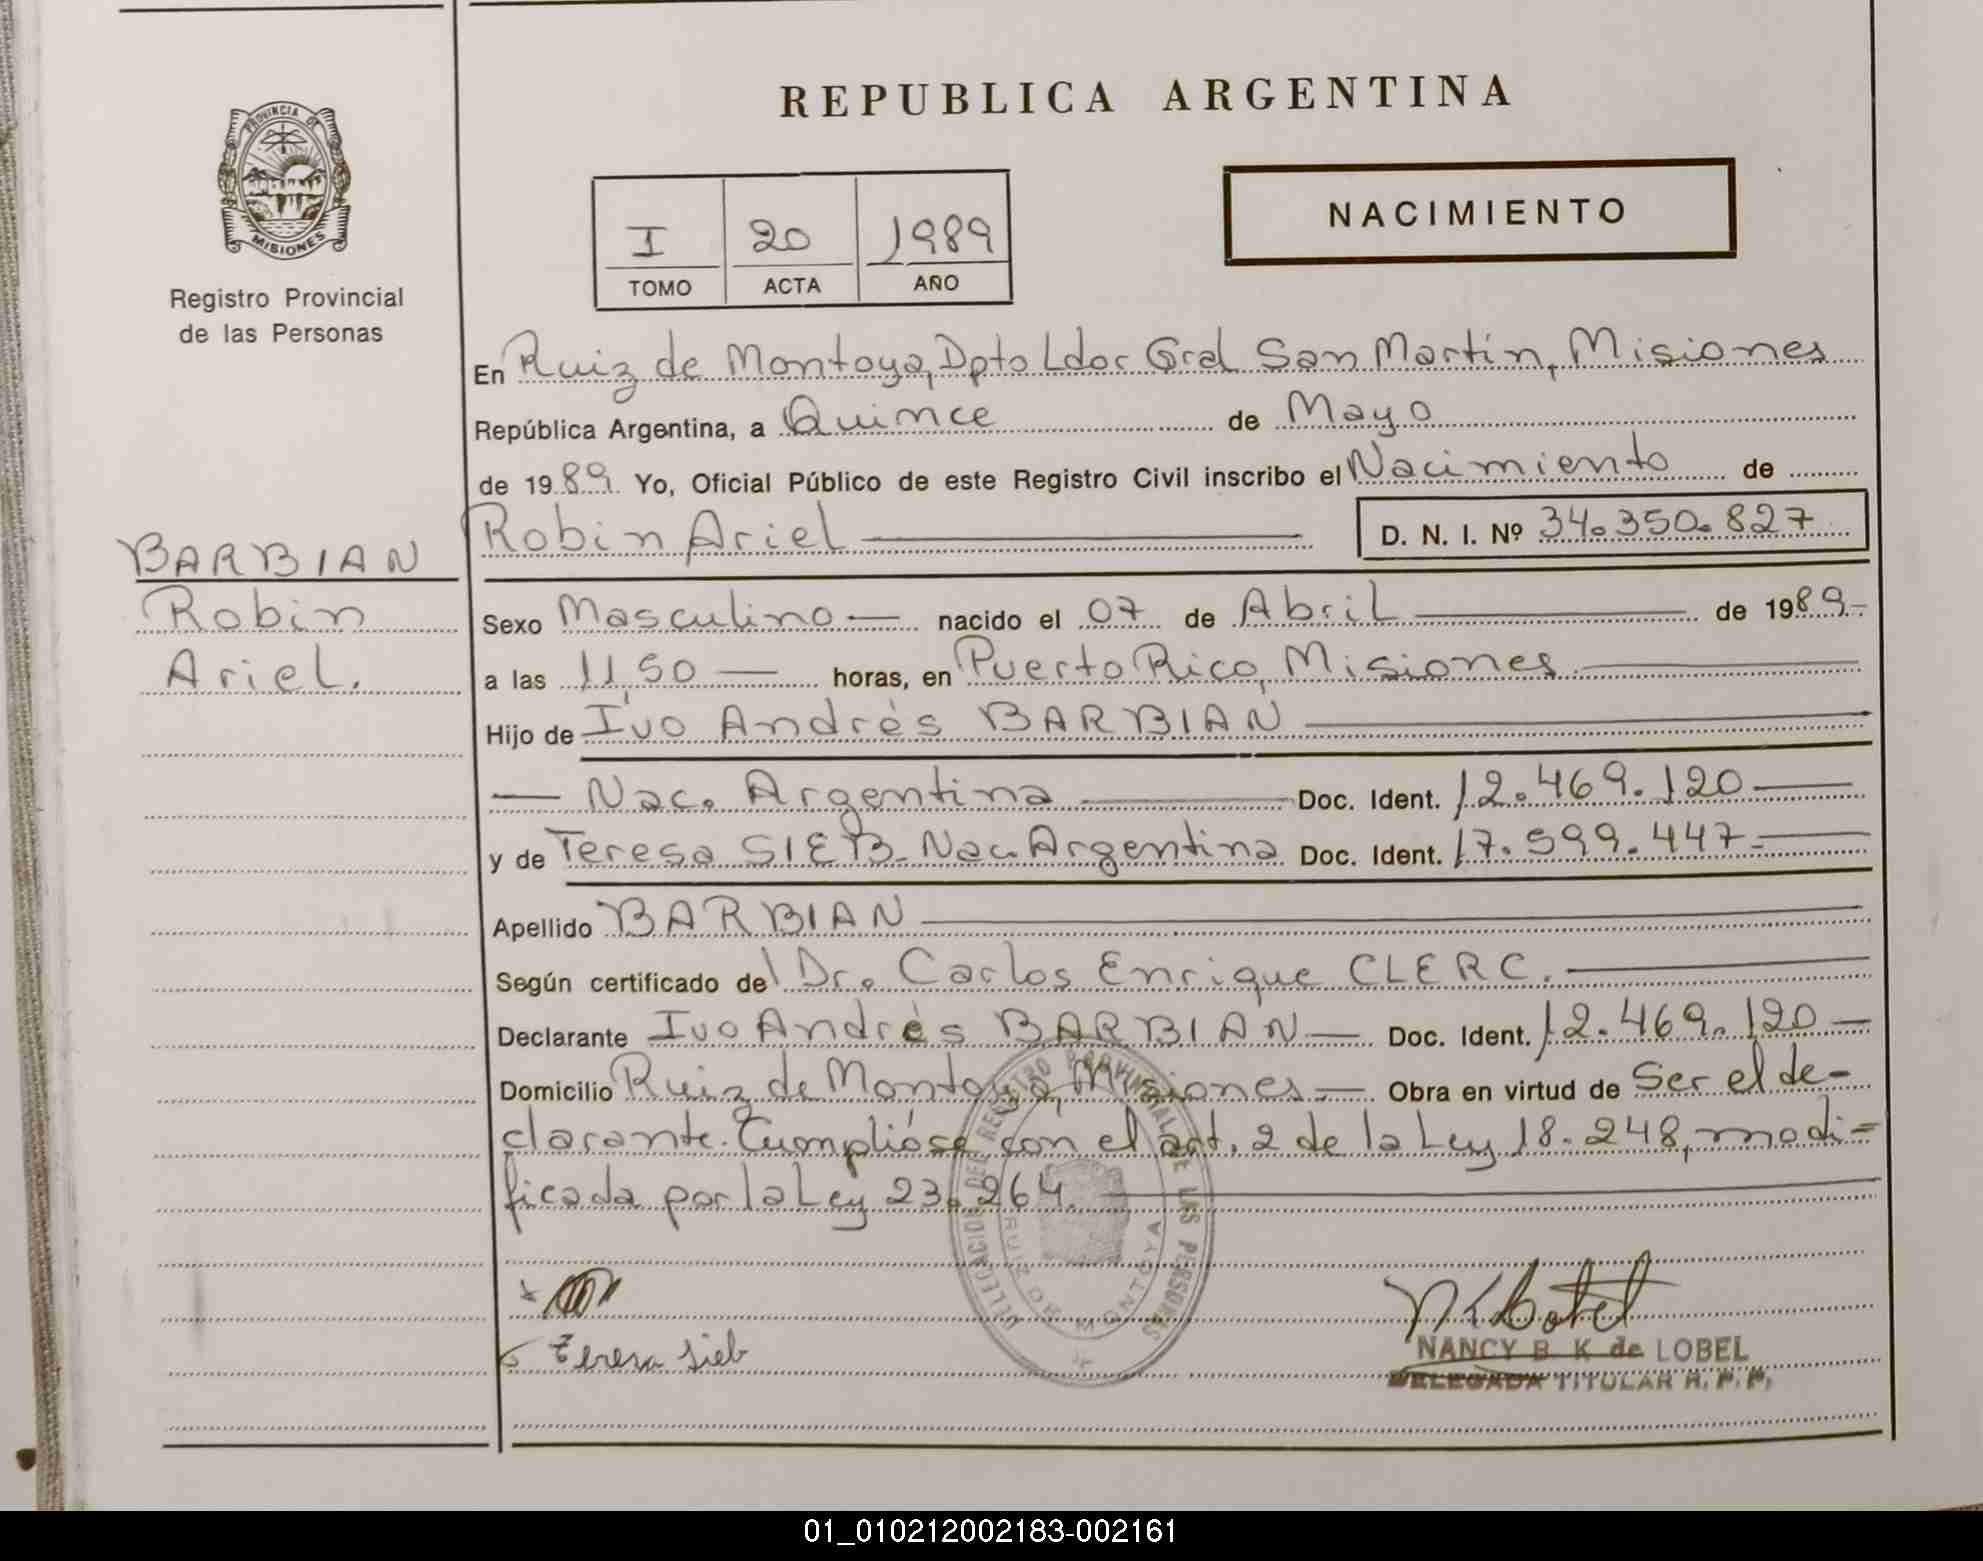 REPUBLICA ARGENTINA
PROVINCIA DE
MISIONES
Registro Provincial
de las Personas
I 20 1989
TOMO ACTA AÑO
NACIMIENTO
En Ruiz de Montoya, Dpto Ldor Gral San Martín, Misiones
República Argentina, a Quince de Mayo
de 1989. Yo, Oficial Público de este Registro Civil inscribo el Nacimiento de
Robin Ariel D. N. I. Nº 34.350.827
BARBIAN
Robin
Ariel.
Sexo Masculino — nacido el 07 de Abril de 1989.-
a las 11,50 — horas, en Puerto Rico, Misiones.
Hijo de Ivo Andrés BARBIAN
— Nac. Argentina Doc. Ident. 12.469.120
y de Teresa SIEB. Nac. Argentina Doc. Ident. 17.599.447.-
Apellido BARBIAN
Según certificado del Dr. Carlos Enrique CLERC.
Declarante Ivo Andrés BARBIAN — Doc. Ident. 12.469.120 —
Domicilio Ruiz de Montoya, Misiones — Obra en virtud de Ser el de-
clarante. Cumplióse con el art. 2 de la Ley 18.248, modi-
ficada por la Ley 23.264.
DELEGACION DEL REGISTRO PROVINCIAL DE LAS PERSONAS
RUIZ DE MONTOYA
Teresa Sieb
NANCY B. K. de LOBEL
DELEGADA TITULAR R. P. P.
01_010212002183-002161